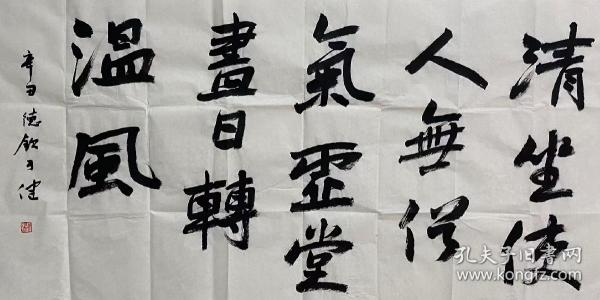 清坐使
人無俗
氣虛堂
晝日轉
溫風
辛丑 德欽 子健
孔夫子旧书网
www.kongfz.com